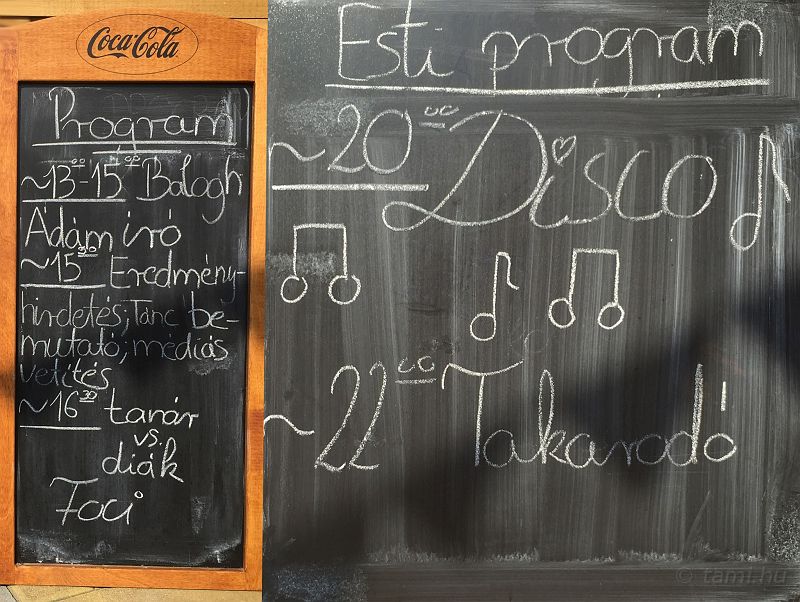 Coca-Cola
Program
~13⁰⁰-15⁰⁰ Balogh
Ádám író
~15⁰⁰ Eredmény-
hirdetés; Tánc be-
mutató; médiás
vetítés
~16³⁰ tanár
vs.
diák
Foci
Esti program
~20⁰⁰ Disco
~22⁰⁰ Takarodó
© tami.hu